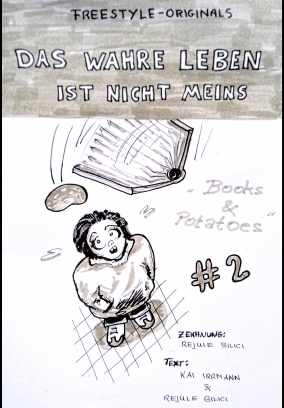 FREESTYLE-ORIGINALS
DAS WAHRE LEBEN
IST NICHT MEINS
"Books
&
Potatoes"
#2
ZEICHNUNG:
REJULE BILICI
TEXT:
KAI IRRMANN
&
REJULE BILICI